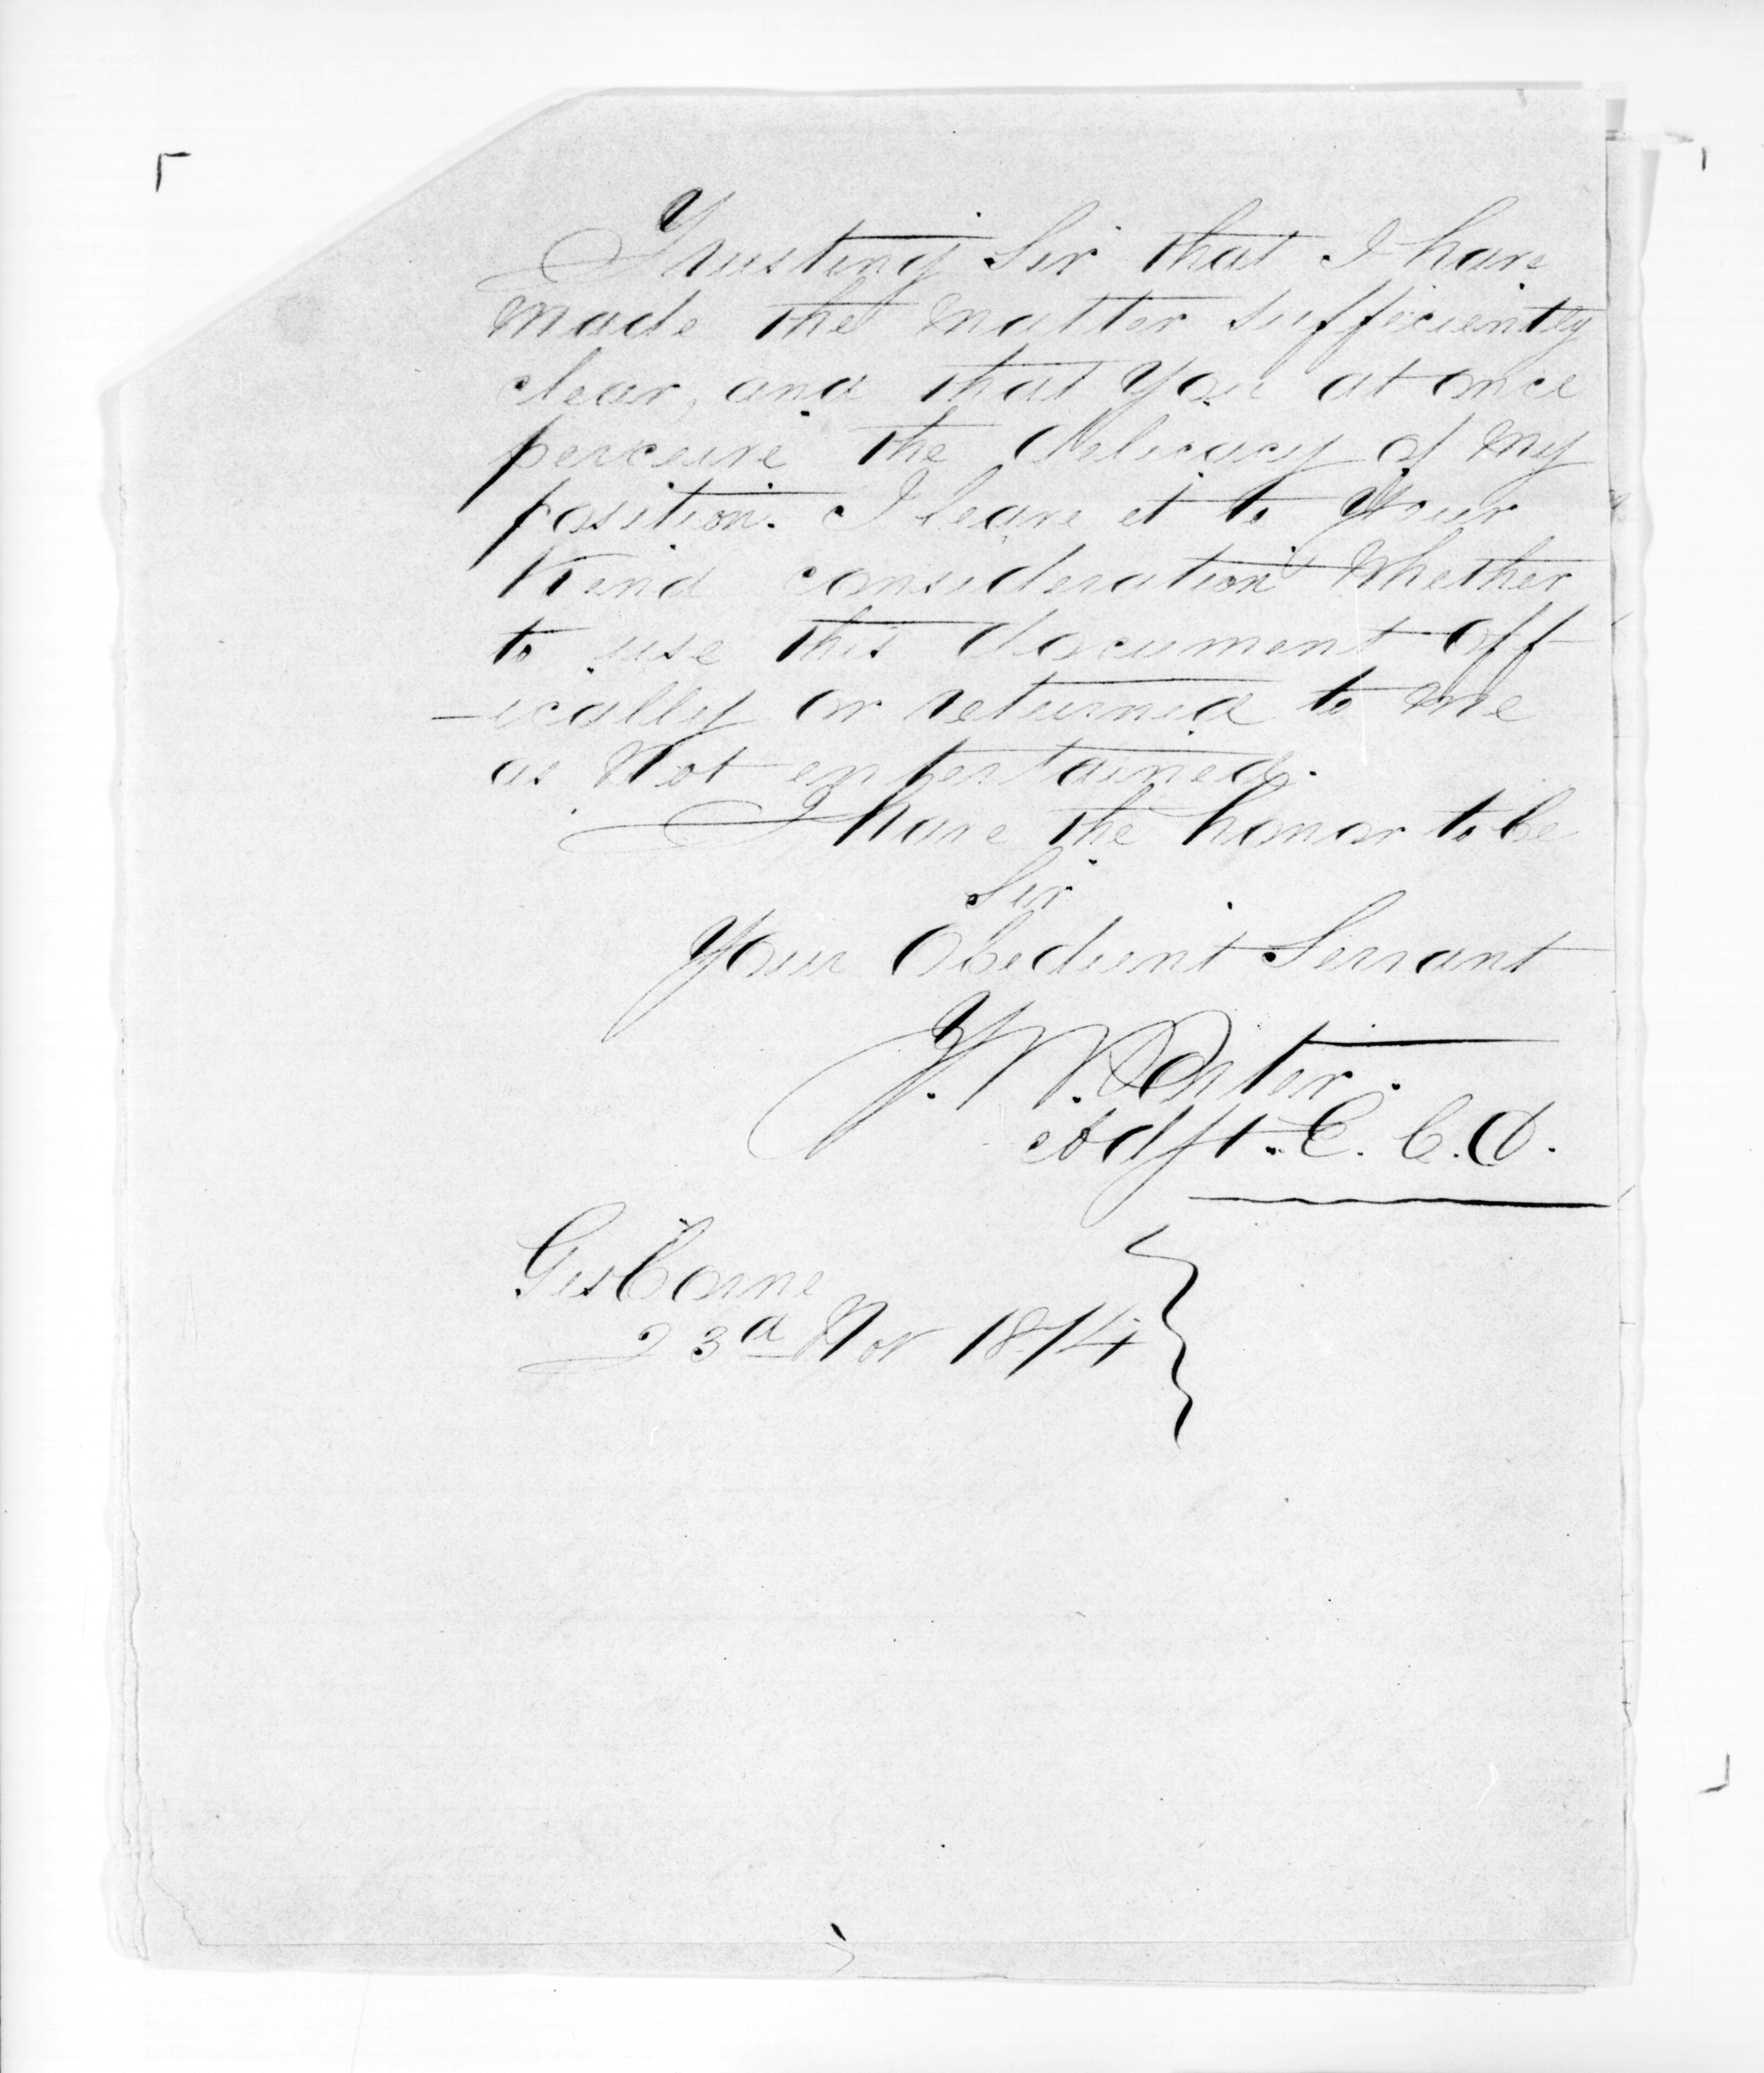 Trusting Sir that I have
made the matter sufficiently
clear, and that you at once
perceive the delicacy of my
position. I leave it to Your
Kind consideration whether
to use this document off
-ically or returned to me
as Not entertained.
I have the honor to be
Sir
Your Obedient Servant
T. W. Porter.
Adjt. E. C. D.
Gisborne
23d Nov 1874